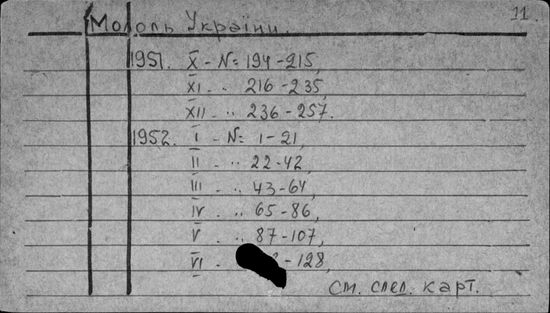 11
Молодь України.
1951. X - №: 194-215,
XI - " 216-235,
XII - " 236-257.
1952. I - №: 1-21,
II - " 22-42,
III - " 43-64,
IV - " 65-86,
V - " 87-107,
VI - -128,
См. след. карт.